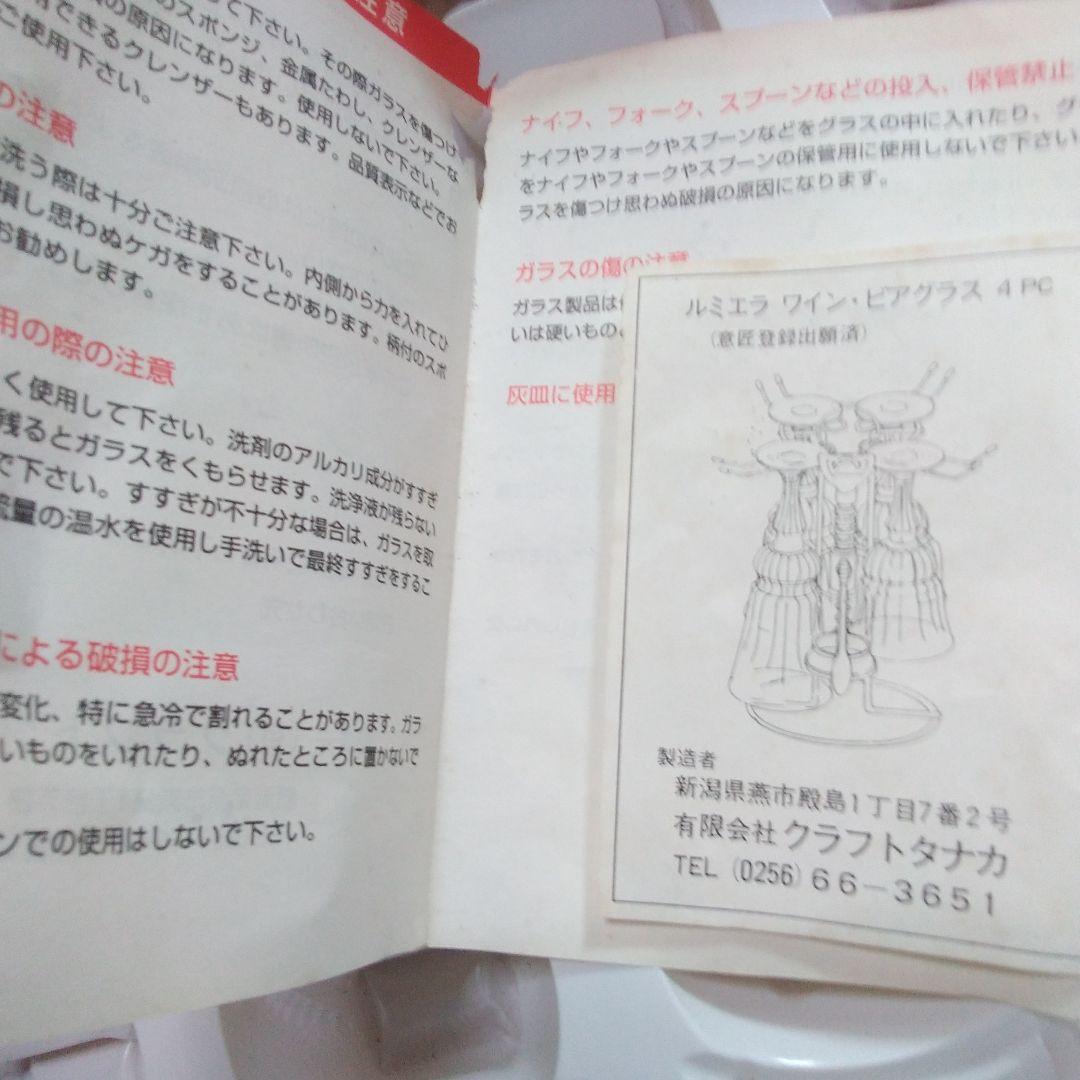 注意
て下さい。その際ガラスを傷つけ
のスポンジ、金属たわし、クレンザーな
の原因になります。使用しないで下さい。
用できるクレンザーもあります。品質表示などでお
ご使用下さい。
の注意
洗う際は十分ご注意下さい。内側から力を入れてひ
損し思わぬケガをすることがあります。柄付のスポ
お勧めします。
用の際の注意
く使用して下さい。洗剤のアルカリ成分がすすぎ
残るとガラスをくもらせます。洗浄液が残らない
で下さい。すすぎが不十分な場合は、ガラスを取
流量の温水を使用し手洗いで最終すすぎをするこ
による破損の注意
変化、特に急冷で割れることがあります。ガラ
いものをいれたり、ぬれたところに置かないで
ンでの使用はしないで下さい。
ナイフ、フォーク、スプーンなどの投入、保管禁止
ナイフやフォークやスプーンなどをグラスの中に入れたり、グ
をナイフやフォークやスプーンの保管用に使用しないで下さい
ラスを傷つけ思わぬ破損の原因になります。
ガラスの傷の注意
ガラス製品は
いは硬いもの
灰皿に使用
ルミエラ ワイン・ビアグラス 4PC
(意匠登録出願済)
製造者
新潟県燕市殿島1丁目7番2号
有限会社クラフトタナカ
TEL (0256) 66-3651